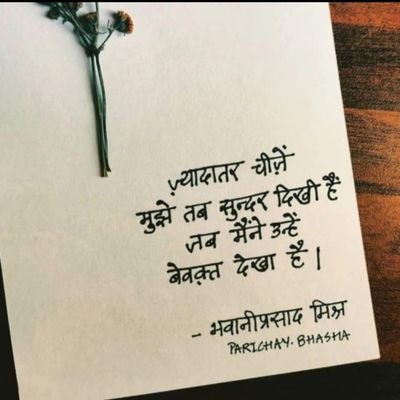 ज़्यादातर चीज़ें
मुझे तब सुन्दर दिखी हैं
जब मैंने उन्हें
बेवक़्त देखा है।
- भवानीप्रसाद मिश्र
PARICHAY.BHASHA